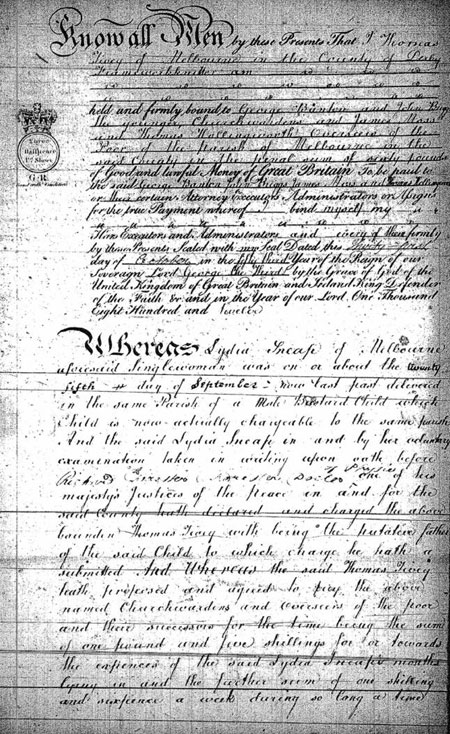 Know all Men by these Presents That I Thomas
Tivey of Melbourne in the County of Derby
Frameworkknitter am
held and firmly bound to George Banton and John Briggs
the younger Churchwardens and James Moss
and Thomas Hollingworth Overseers of the
Poor of the parish of Melbourne in the
said County in the Penal sum of sixty pounds
of Good and lawful Money of Great Britain To be paid to
the said George Banton John Briggs James Moss and Thomas Hollingworth
or their certain Attorney Executors Administrators or Assigns
for the true Payment whereof I bind myself my
Heirs Executors and Administrators and every of them firmly
by these Presents, Sealed with my Seal Dated this Twenty first
day of October in the fifty third Year of the Reign of our
Soveraign Lord George the Third by the Grace of God of the
United Kingdom of Great Britain and Ireland King Defender
of the Faith & and in the Year of our Lord One Thousand
Eight Hundred and twelve
G R
Whereas Lydia Sneap of Melbourne
aforesaid Singlewoman was on or about the twenty
fifth day of September now last past delivered
in the same Parish of a Male Bastard Child which
Child is now actually chargeable to the same parish
And the said Lydia Sneap in and by her voluntary
examination taken in writing upon oath before
Richard Doctor one of his
majesty's Justices of the peace in and for the
said County hath declared and charged the above
bounden Thomas Tivey with being the putative father
of the said Child to which charge he hath
submitted And Whereas the said Thomas Tivey
hath proposed and agreed to pay the above
named Churchwardens and Overseers of the poor
and their successors for the time being the sum
of one pound and five shillings for or towards
the expences of the said Lydia Sneaps months
lying in and the further sum of one shilling
and sixpence a week during so long a time